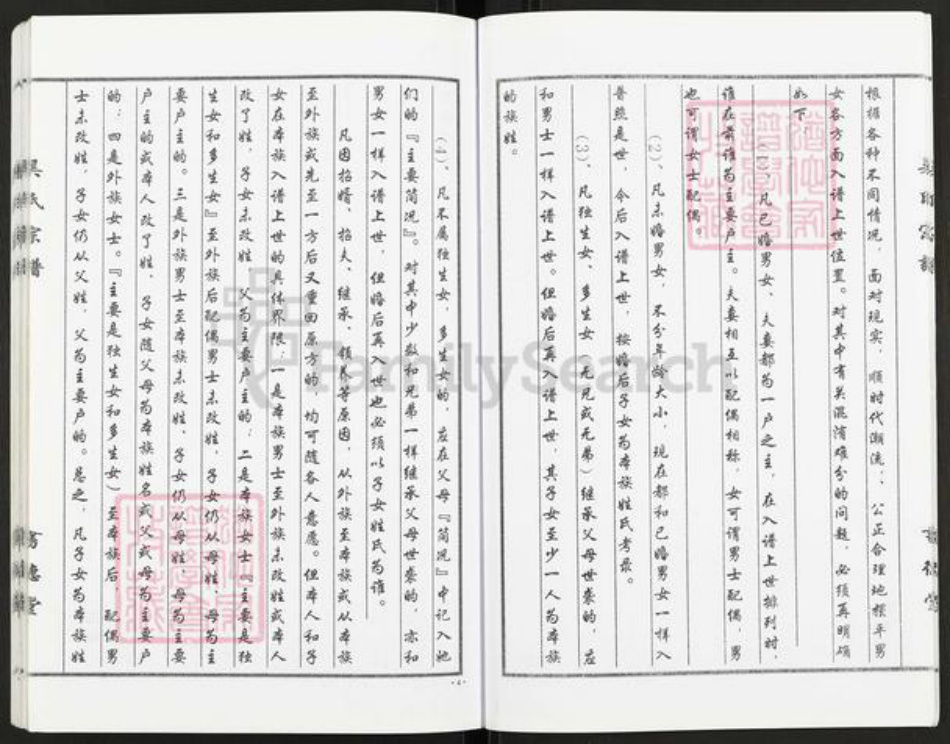 根据各种不同情况，面对现实，顺时代潮流；公正合理地摆平男
女各方面入谱上世位置。对其中有关混淆难分的问题，必须再明确
如下
(1)、凡已婚男女、夫妻都为一户之主，在入谱上世排列时，
谁在前谁为主要户主。夫妻相互以配偶相称，女可谓男士配偶，男
也可谓女士配偶。
(2)、凡未婚男女，不分年龄大小，现在都和已婚男女一样入
普照是世，今后入谱上世，按婚后子女为本族姓氏考录。
(3)、凡独生女、多生女（无兄或无弟）继承父母世袭的，应
和男士一样入谱上世。但婚后再入谱上世，其子女至少一人为本族
的族姓。
(4)、凡不属独生女，多生女的，应在父母『简况』中记入她
们的『主要简况』。对其中少数和兄弟一样继承父母世袭的，亦和
男女一样入谱上世，但婚后再入世也必须以子女姓氏为准。
凡因招婿、招夫、继承、领养等原因，从外族至本族或从本族
至外族或先至一方后又重回原方的，均可随各人意愿。但本人和子
女在本族入谱上世的具体界限：一是本族男士至外族未改姓或本人
改了姓，子女未改姓，父为主要户主的；二是本族女士『主要是独
生女和多生女』至外族后配偶男士未改姓，子女仍从母姓，母为主
要户主的。三是外族男士至本族未改姓、子女仍从母姓、母为主要
户主的或本人改了姓，子女随父母为本族姓名或父或母为主要户
的：四是外族女士。『主要是独生女和多生女）至本族后，配偶男
士未改姓，子女仍从父姓，父为主要户的。总之，凡子女为本族姓
吴氏宗谱
FamilySearch